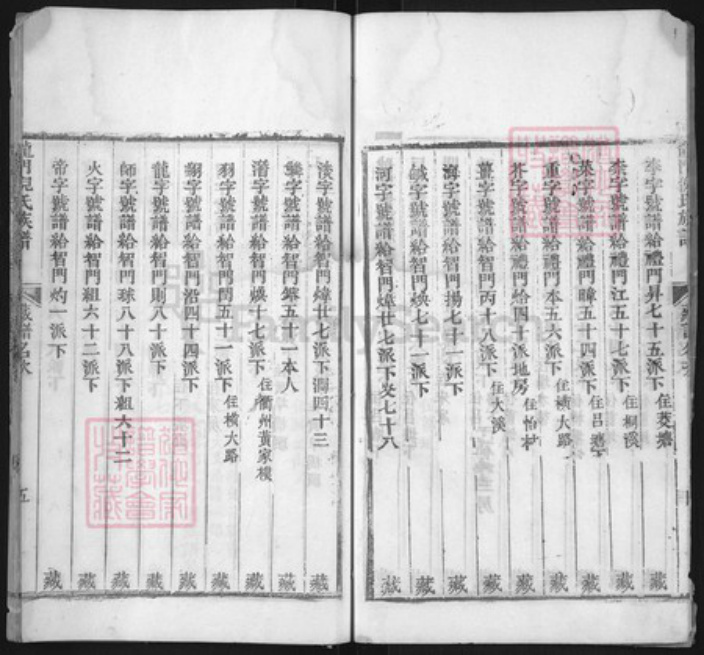 李字號譜給禮門昇七十五派下住菱塘 藏
柰字號譜給禮門江五十七派下住桐溪 藏
菜字號譜給禮門暐五十四派下住呂 藏
重字號譜給禮門本五六派下住橫大路 藏
芥字號譜給禮門恰四十派地房住怡村 藏
薑字號譜給智門丙十八派下住大溪 藏
海字號譜給智門揚七十一派下 藏
鹹字號譜給智門煥七十一派下 藏
河字號譜給智門煒廿七派下 七十八 藏
淡字號譜給智門煒廿七派下潤四十三 藏
鱗字號譜給智門 五十一本人 藏
潛字號譜給智門煥十七派下住衢州黃家樸 藏
羽字號譜給智門閏五十一派下住橫大路 藏
翔字號譜給智門沿四十四派下 藏
龍字號譜給智門則八十派下 藏
師字號譜給智門球八十八派下 六十二 藏
火字號譜給智門 六十二派下 藏
帝字號譜給智門灼一派下 藏
龍門倪氏族譜 藏譜名次 五
FamilySearch